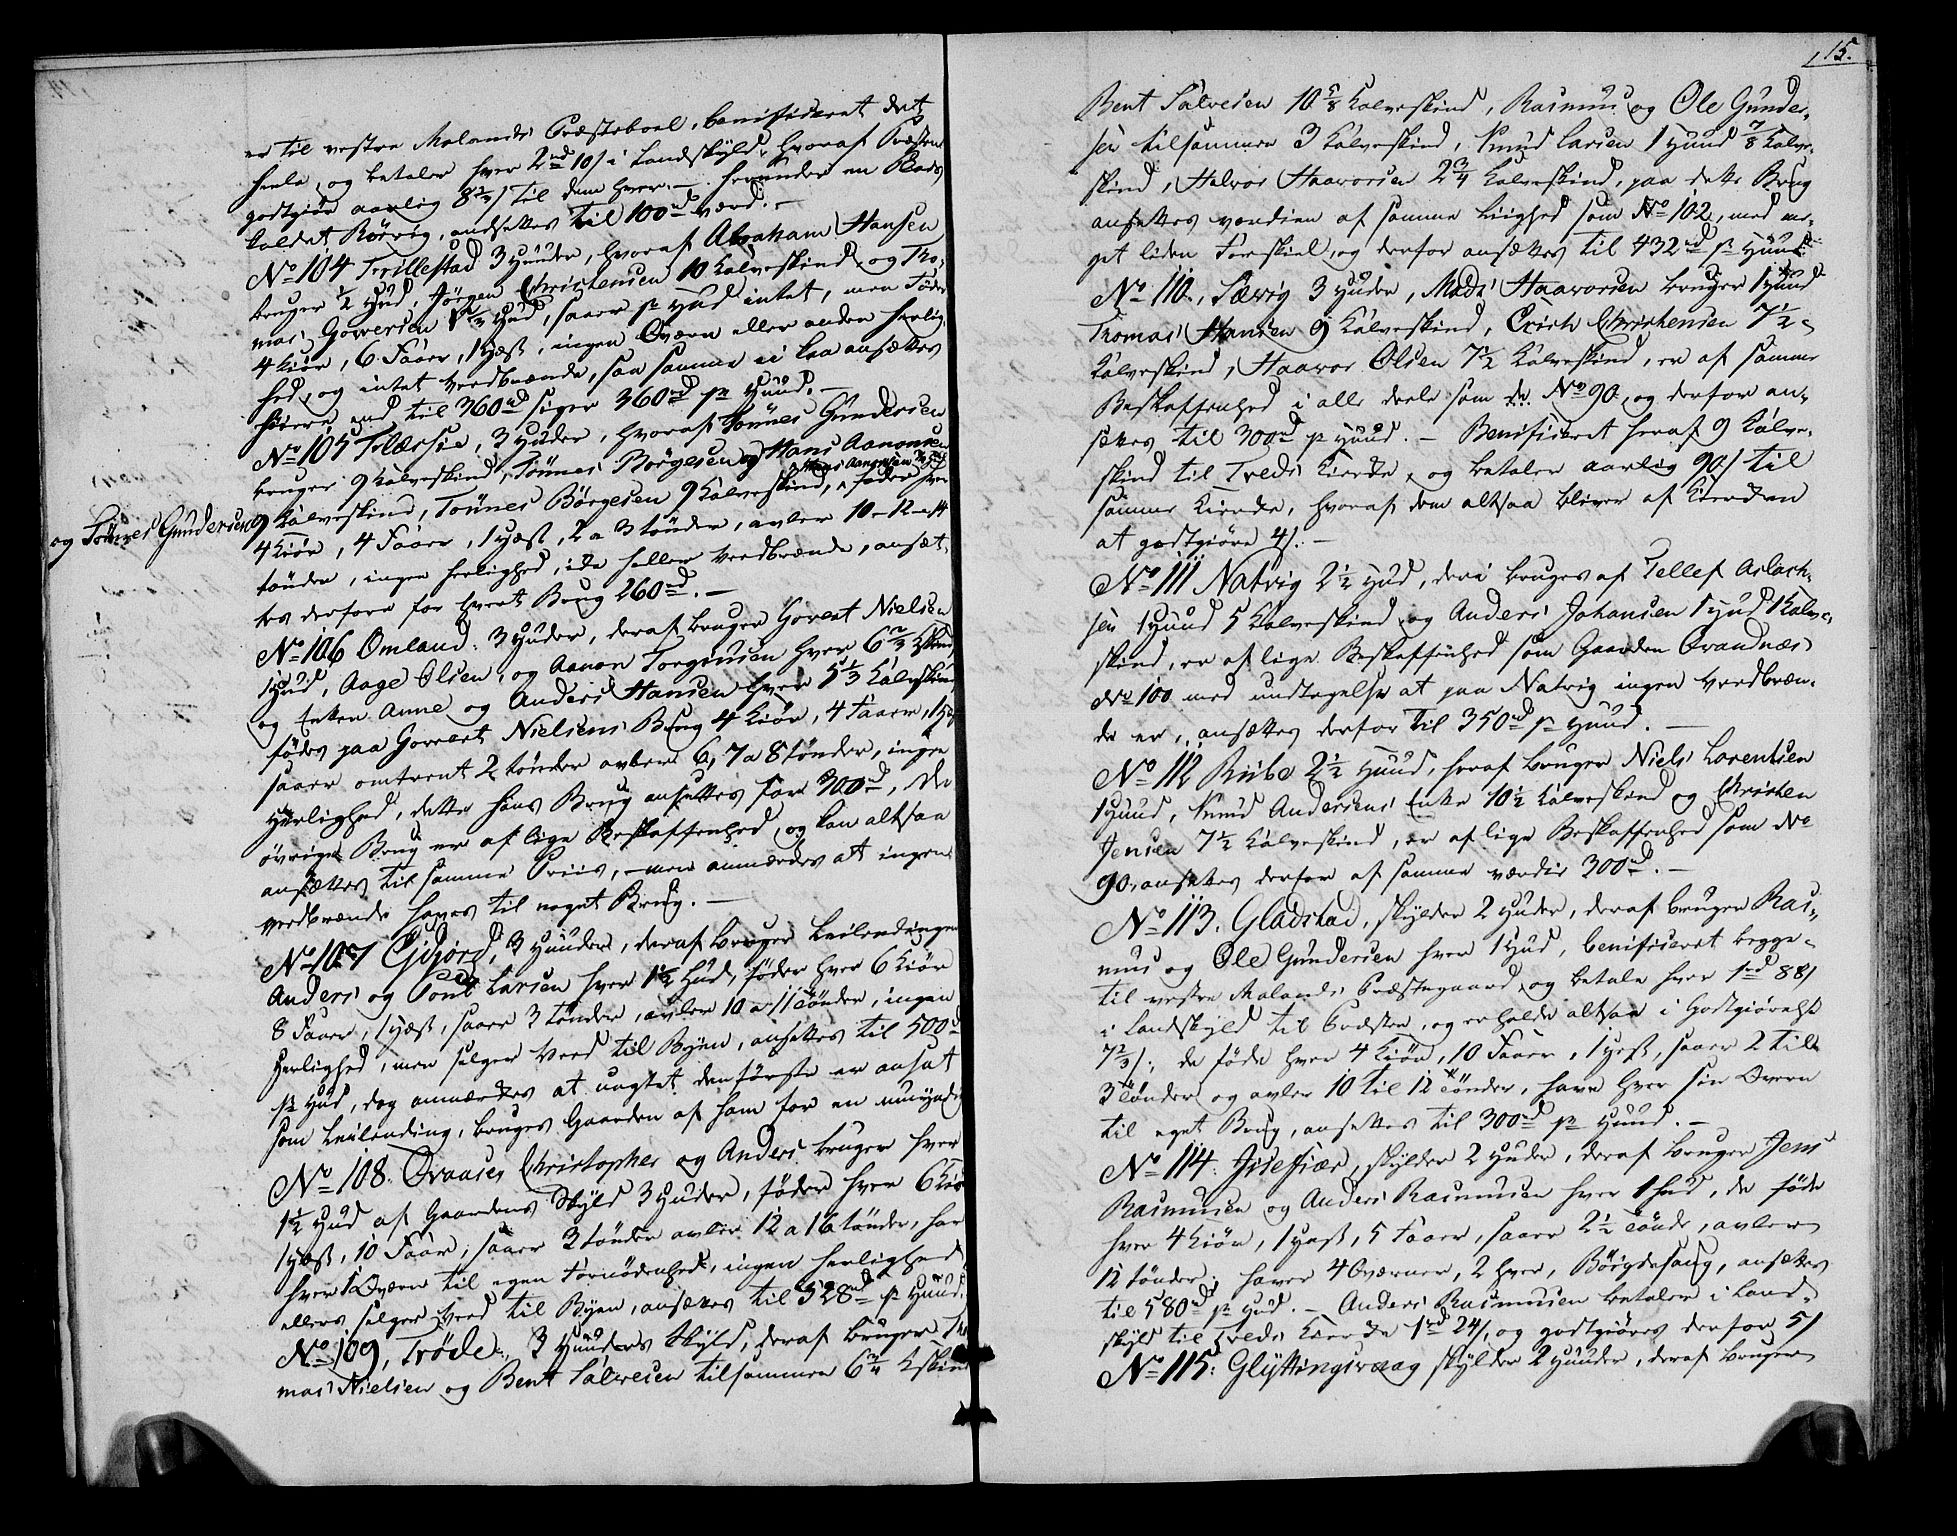 er til vestre Molands Præsteboel, benificeret det
heele, og betaler hver 2 rd 10 s i Landskyld, hvoraf Præsten
godtgiør aarlig 8 2/3 s til dem hver. — herunder en Plads
kaldet Rørvig, andsættes til 100 rd værd. —
No 104 Trillestad 3 Huuder, hvoraf Abraham Hansen
bruger 1/2 Hud, Jørgen Christensen 10 Kalveskind, og Tho-
mas Goversen 1 2/3 Hud, saaer pr Hud intet, men føder
4 Kiør, 6 Faaer, 1 Hæst, ingen Qværn eller anden herlig-
hed, og intet Vedbrænde, saa samme ei kan ansættes
høiere end til 360 rd siger 360 rd pr Huud. —
No 105 Tolærsie, 3 Huder, hvoraf Tønnes Gundersen
bruger 9 Kalveskind, Tønnes Børgesen og Hans Aanonsen
9 Kalveskind, Tønnes Børgesen 9 Kalveskind, Hans Aanonsen føder hver
og Tønnes Gundersen
4 Kiør, 4 Faaer, 1 Hæst, 2 a 3 tønder, avler 10 - 12 - 14
tønder, ingen herlighed, ide heller Vedbrænde, ansæt-
tes derfore for hvert Brug 260 rd. —
No 106 Omland 3 Huder, deraf bruger Govert Nielsen
1 Hud, Aage Olsen, og Aanon Torginsen hver 6 2/3 Kskind
og Enken Anne og Anders Hansen hver 5 1/3 Kalvskind
fødes paa Govert Nielsens Brug 4 Kiør, 4 Faaer, 1 Hæst
saaer omtrent 2 tønder avler 6, 7 a 8 tønder, ingen
Herlighed, dette hans Brug ansættes for 300 rd, de
øvrige Brug er af lige Beskaffenhed, og kan altsaa
ansættes til samme Priis, — men anmærkes at ingen
vedbrænde haves til noget Brug. —
No 107 Gjøgd, 3 Huuder, deraf bruger Leilendingen
Anders og Poul Larsen hver 1 1/2 Hud, føder hver 6 Kiør
8 Faaer, 1 Hæst, saaer 3 tønder, avler 10 a 11 tønder, ingen
herlighed, men selger Veed til Byen, ansættes til 500 rd
pr Hud, dog anmærkes at uagtet den første er ansat
som Leilending, bruges Gaarden af ham for en umyndig
No 108. Qvaase Christopher og Anders bruger hver
1 1/2 Hud af Gaardens Skyld 3 Huder, føder hver 6 Kiør
1 Hæst, 10 Faaer, saaer 3 tønder avler 12 a 16 tønder, har
hver 1 Qværn til egen Fornødenhed, ingen herlighed
ellers selger Veed til Byen, ansættes til 528 rd pr Huud.
No 109, Trøde, 3 Huuders Skyld, deraf bruger Tho-
mas Nielsen og Bent Salvesen tilsammen 6 3/4 Kskind
115.
Bent Salvesen 10 5/8 Kalveskind, Rasmus og Ole Gunder-
sen tilsammen 3 Kalveskind, Knud Larsen 1 Huud 7/8 Kalve-
skind, Halvor Haavorsen 2 3/4 Kalveskind, paa dette Brug
ansættes værdien af samme Liighed som No 102, med me-
get liden Forskiel, og derfor ansættes til 432 rd pr Huud.
No 110, Særvig 3 Huder, Mads Haavorsen bruger 1 Huud
Thomas Hansen 9 Kalveskind, Erich Christensen 7 1/2
Kalveskind, Haavor Olsen 7 1/2 Kalveskind, er af samme
Beskaffenhed i alle deele som No 90, og derfor an-
sættes til 300 rd pr Huud. — Benificeret heraf 9 Kalve-
skind til Treds Kierke, og betaler aarlig 90 s til
samme Kierke, hvoraf dem altsaa bliver af Kierken
at godtgiøre 4 s. —
No 111 Natvig 2 1/2 Hud, deri bruges af Tellef Aslach-
sen 1 Huud 5 Kalveskind og Anders Johansen 1 Hud 1 Kalve-
skind, er af lige Beskaffenhed som Gaarden Qvandnæs
No 100 med undtagelse at paa Natvig ingen Vedbræn-
de er, ansættes derfor til 350 rd pr Huud. —
No 112 Ribe 2 1/2 Huud, heraf bruger Niels Lorentsen
1 Huud, Knud Andersens Enke 10 1/2 Kalveskind og Christen
Jensen 7 1/2 Kalveskind, er af lige Beskaffenhed som No
90, ansættes derfor af samme værdie 300 rd. —
No 113. Gladstad, skylder 2 Huder, deraf bruger Ras-
mus og Ole Gundersen hver 1 Hud, benificeret begge
til vestre Molands Præstegaard, og betale hver 1 rd 88 s
i Landskyld til Præsten, og erholde altsaa i Godtgiørelse
7 2/3 s, de føde hver 4 Kiør, 10 Faaer, 1 Hest, saaer 2 til
3 tønder og avler 10 til 12 tønder, have hver sin Qvern
til eget Brug, ansættes til 300 rd pr Huud. —
No 114. Jssefiær, skylder 2 Huder, deraf bruger Jens
Rasmusen og Anders Rasmusen hver 1 hud, de føde
hver 4 Kiør, 1 Hest, 5 Faaer, saaer 2 1/2 tønde, avler
12 tønder, haver 4 Qværner, 2 hver, Bøigdesaug, ansættes
til 580 rd pr Hud. — Anders Rasmusen betaler i Land-
skyld til Treds Kierke 1 rd 24 s, og godtgiøres derfor 5 s
No 115. Glyttingsvaag skylder 2 Huuder, deraf bruger